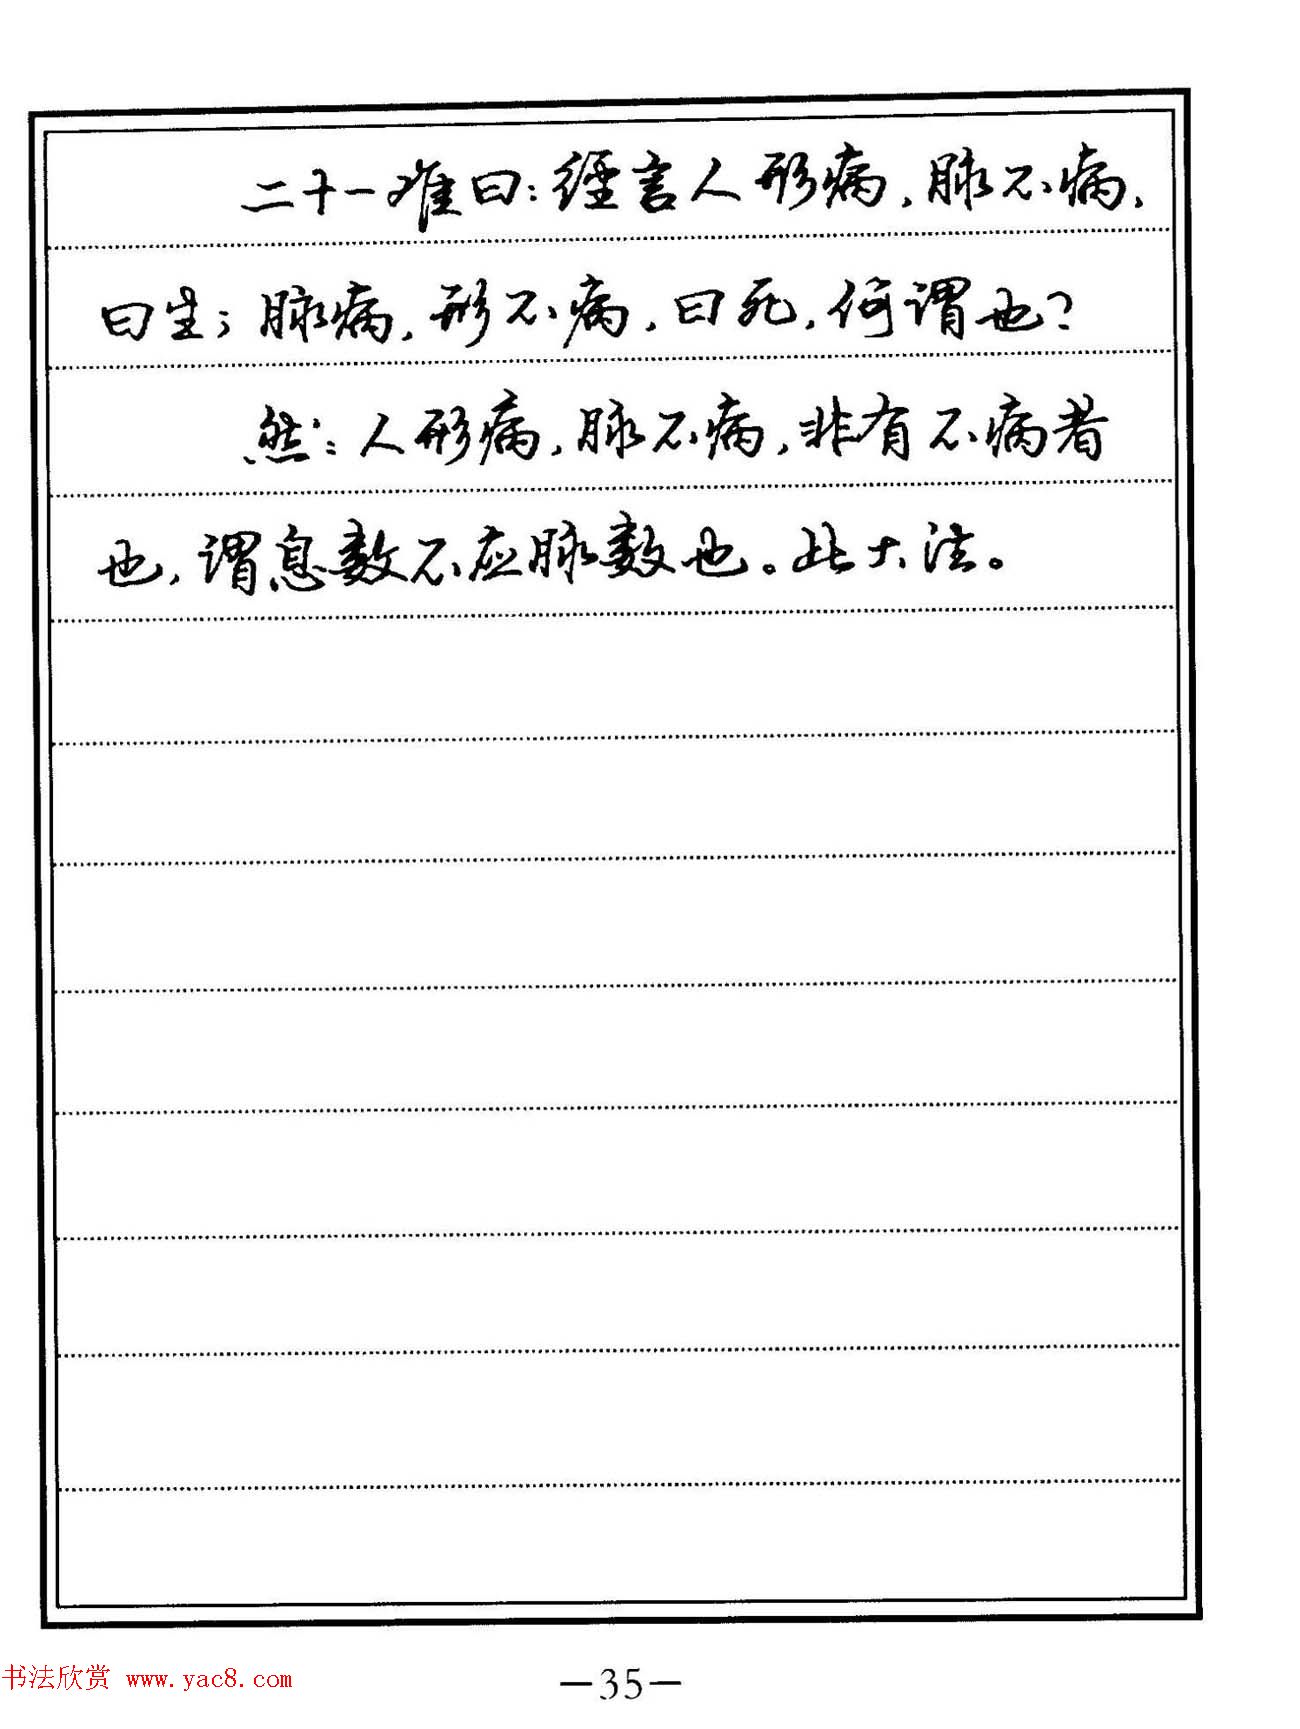 二十一难曰：经言人形病，脉不病，
曰生；脉病，形不病，曰死，何谓也？
然：人形病，脉不病，非有不病者
也，谓息数不应脉数也。此大法。
书法欣赏 www.yac8.com
—35—